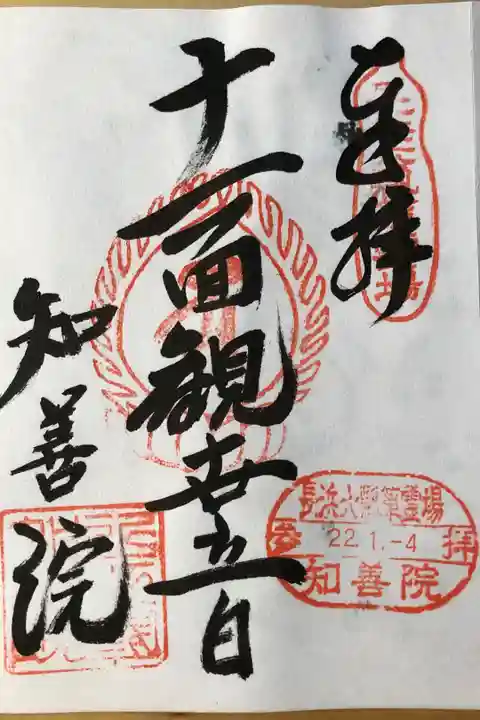 奉拝
十一面観世音
知善院
長浜六瓢箪霊場
奉拝
22.1.-4
知善院